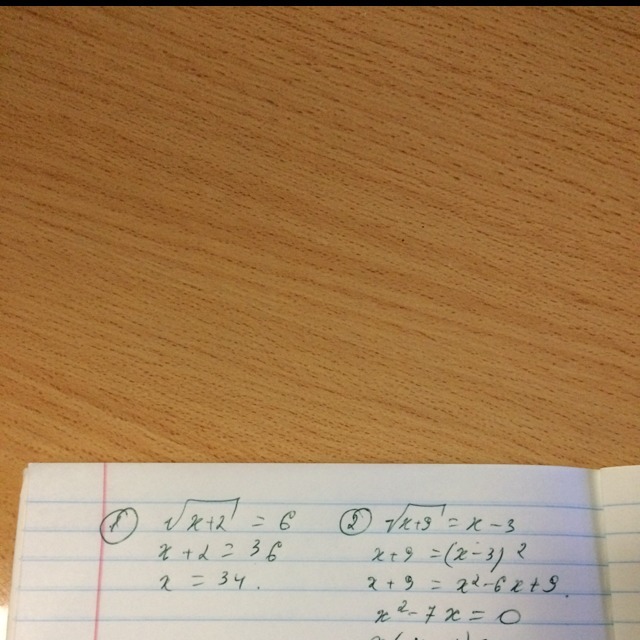 ① √x+2 = 6
x+2 = 36
x = 34.
② √x+9 = x-3
x+9 = (x-3)²
x+9 = x²-6x+9.
x²-7x = 0